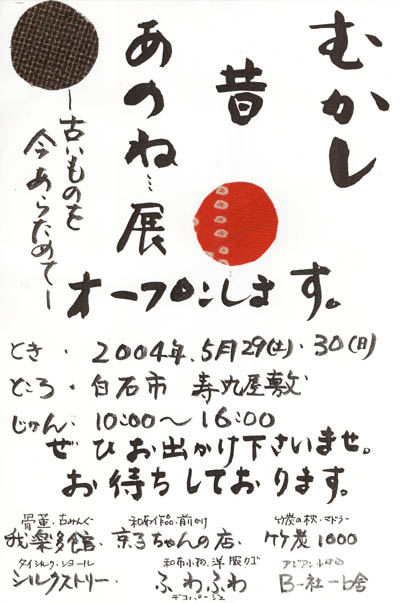 むかし
昔
あのね…展
ー古いものを
今あらためてー
オープンします。
とき・2004年.5月29(土)・30(日)
ところ・白石市 寿丸屋敷
じかん・10:00〜16:00
ぜひお出かけ下さいませ。
お待ちしております。
骨董・古みんぐ
我楽多館・
和布作品・前かけ
京子ちゃんの店・
竹炭の枕・マドラー
竹炭1000
タイシルク・ショール
シルクストリー・
和布小物・洋服カゴ
ふわふわ
デコパージュ
アジアン小物